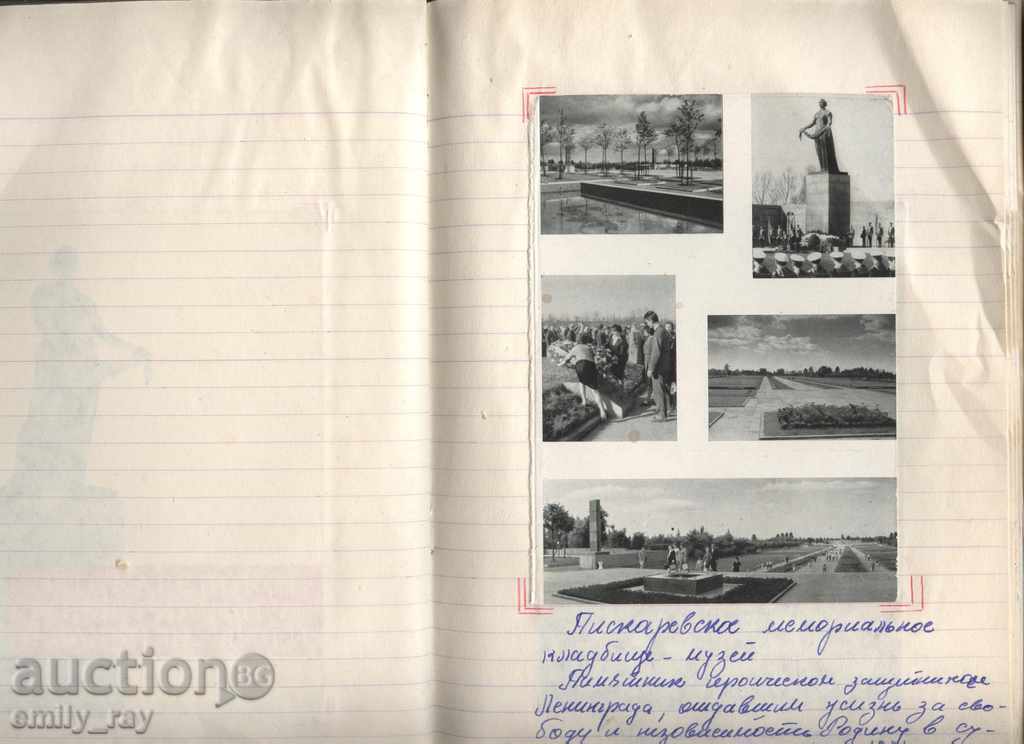 Пискаревско мемориальное
кладбище - музей
Памятник героическом защитникам
Ленинграда, отдавшим жизнь за сво-
боду и незовисимость Родину в су-
auction BG
emily_ray